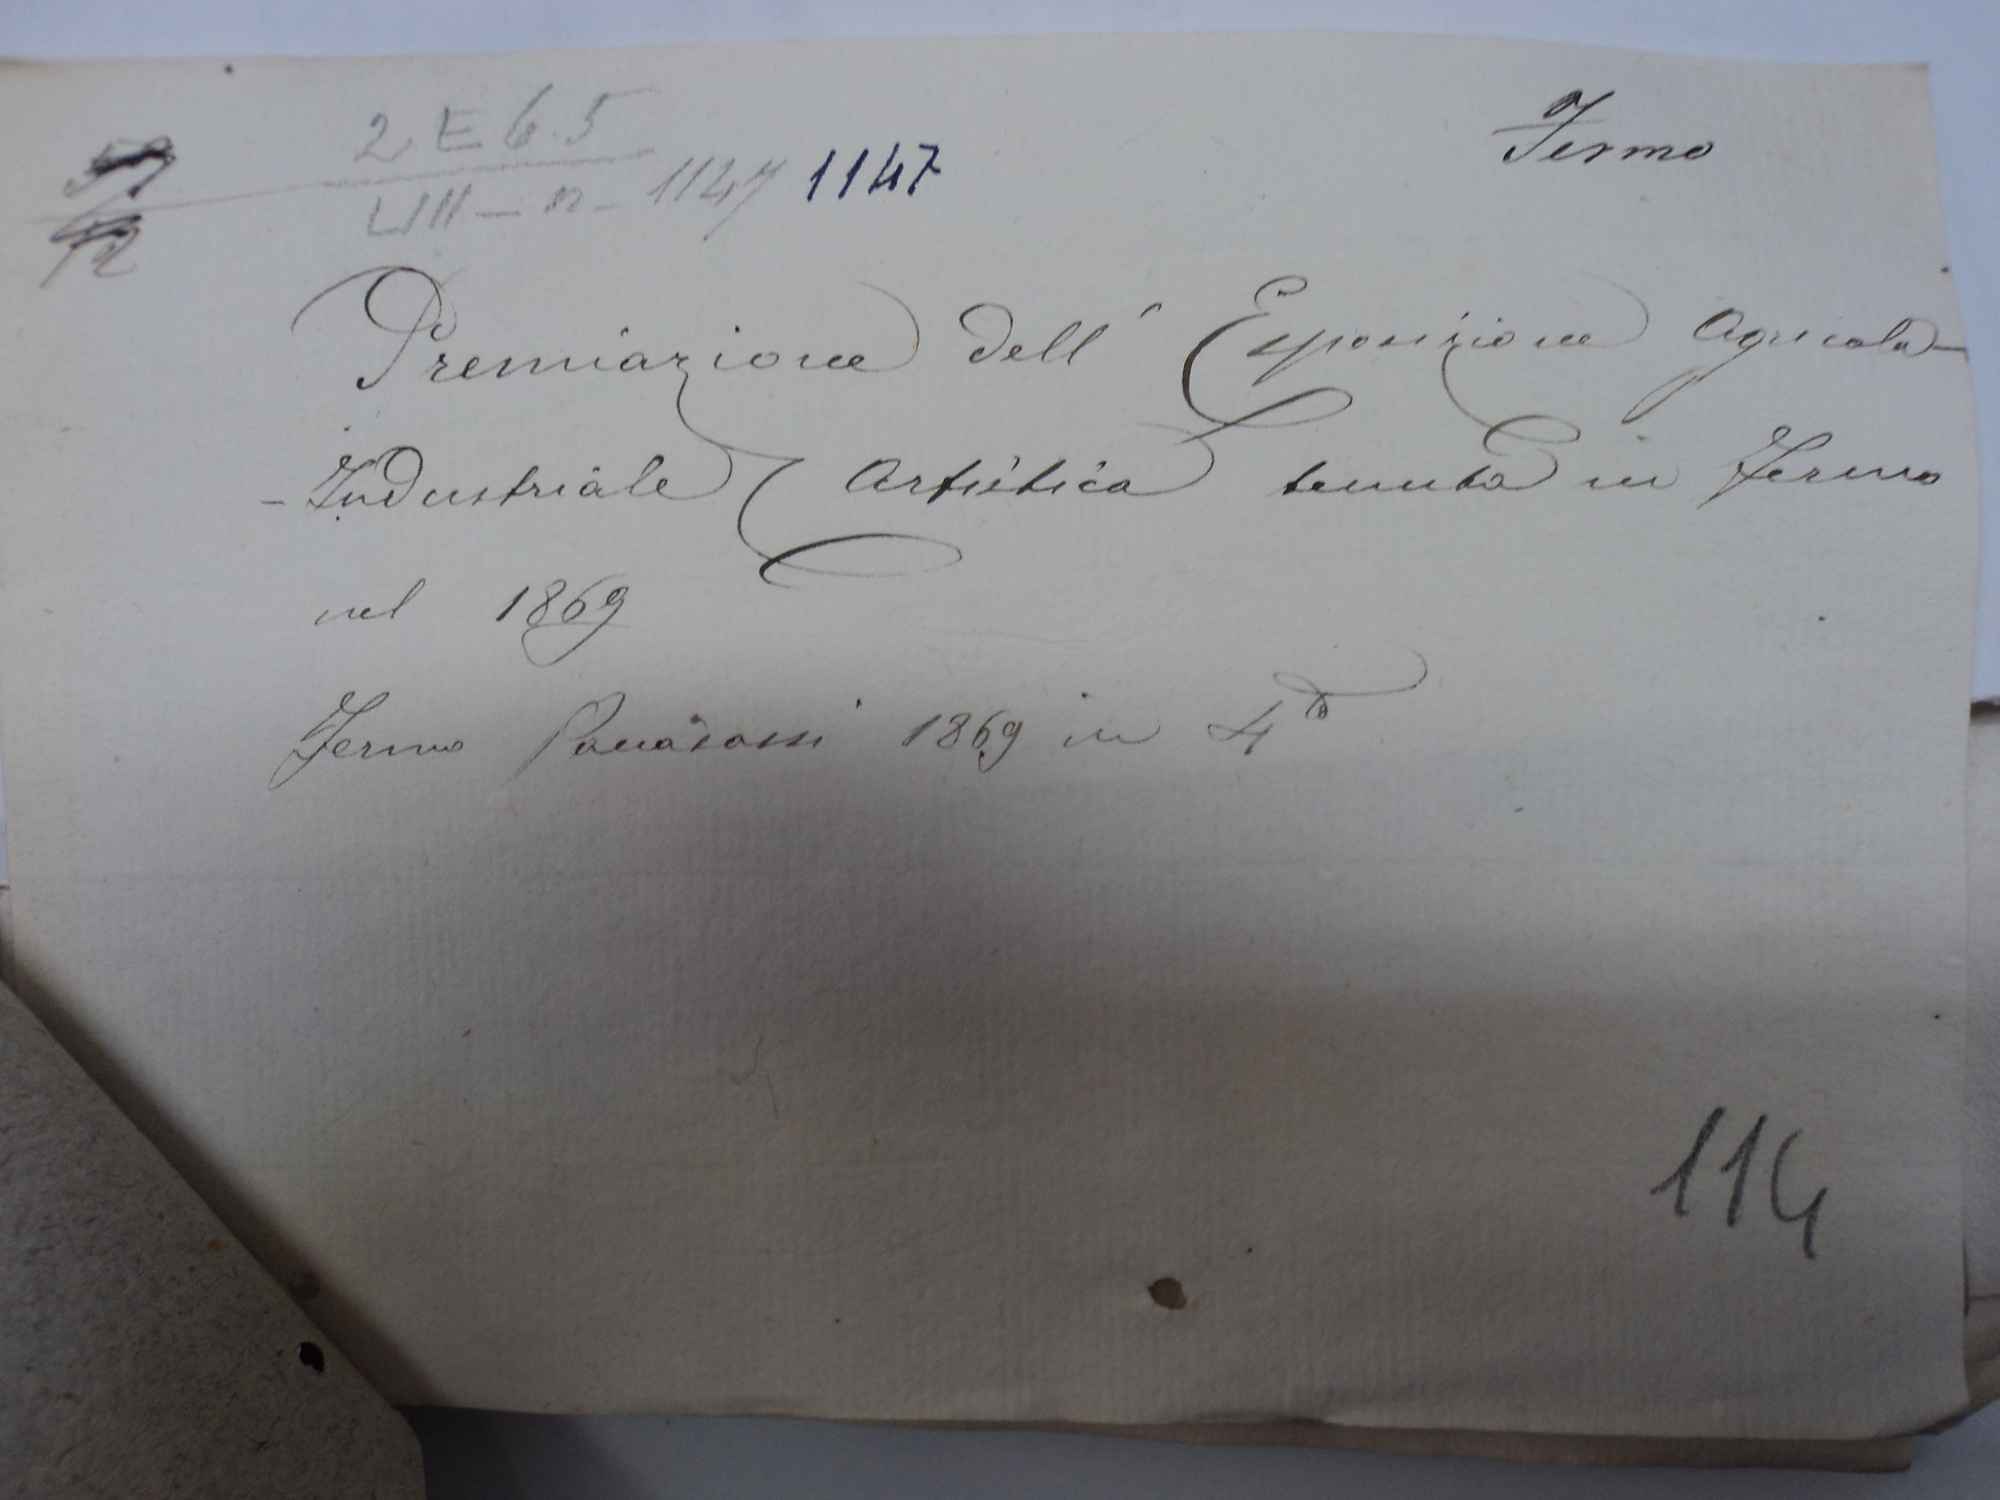 Fermo
2 E 6.5
LIII - n - 1147 1147
Premiazione dell' Esposizione Agricola-
-Industriale Artistica tenuta in Fermo
nel 1869
Fermo Paccasassi 1869 in 4to
114